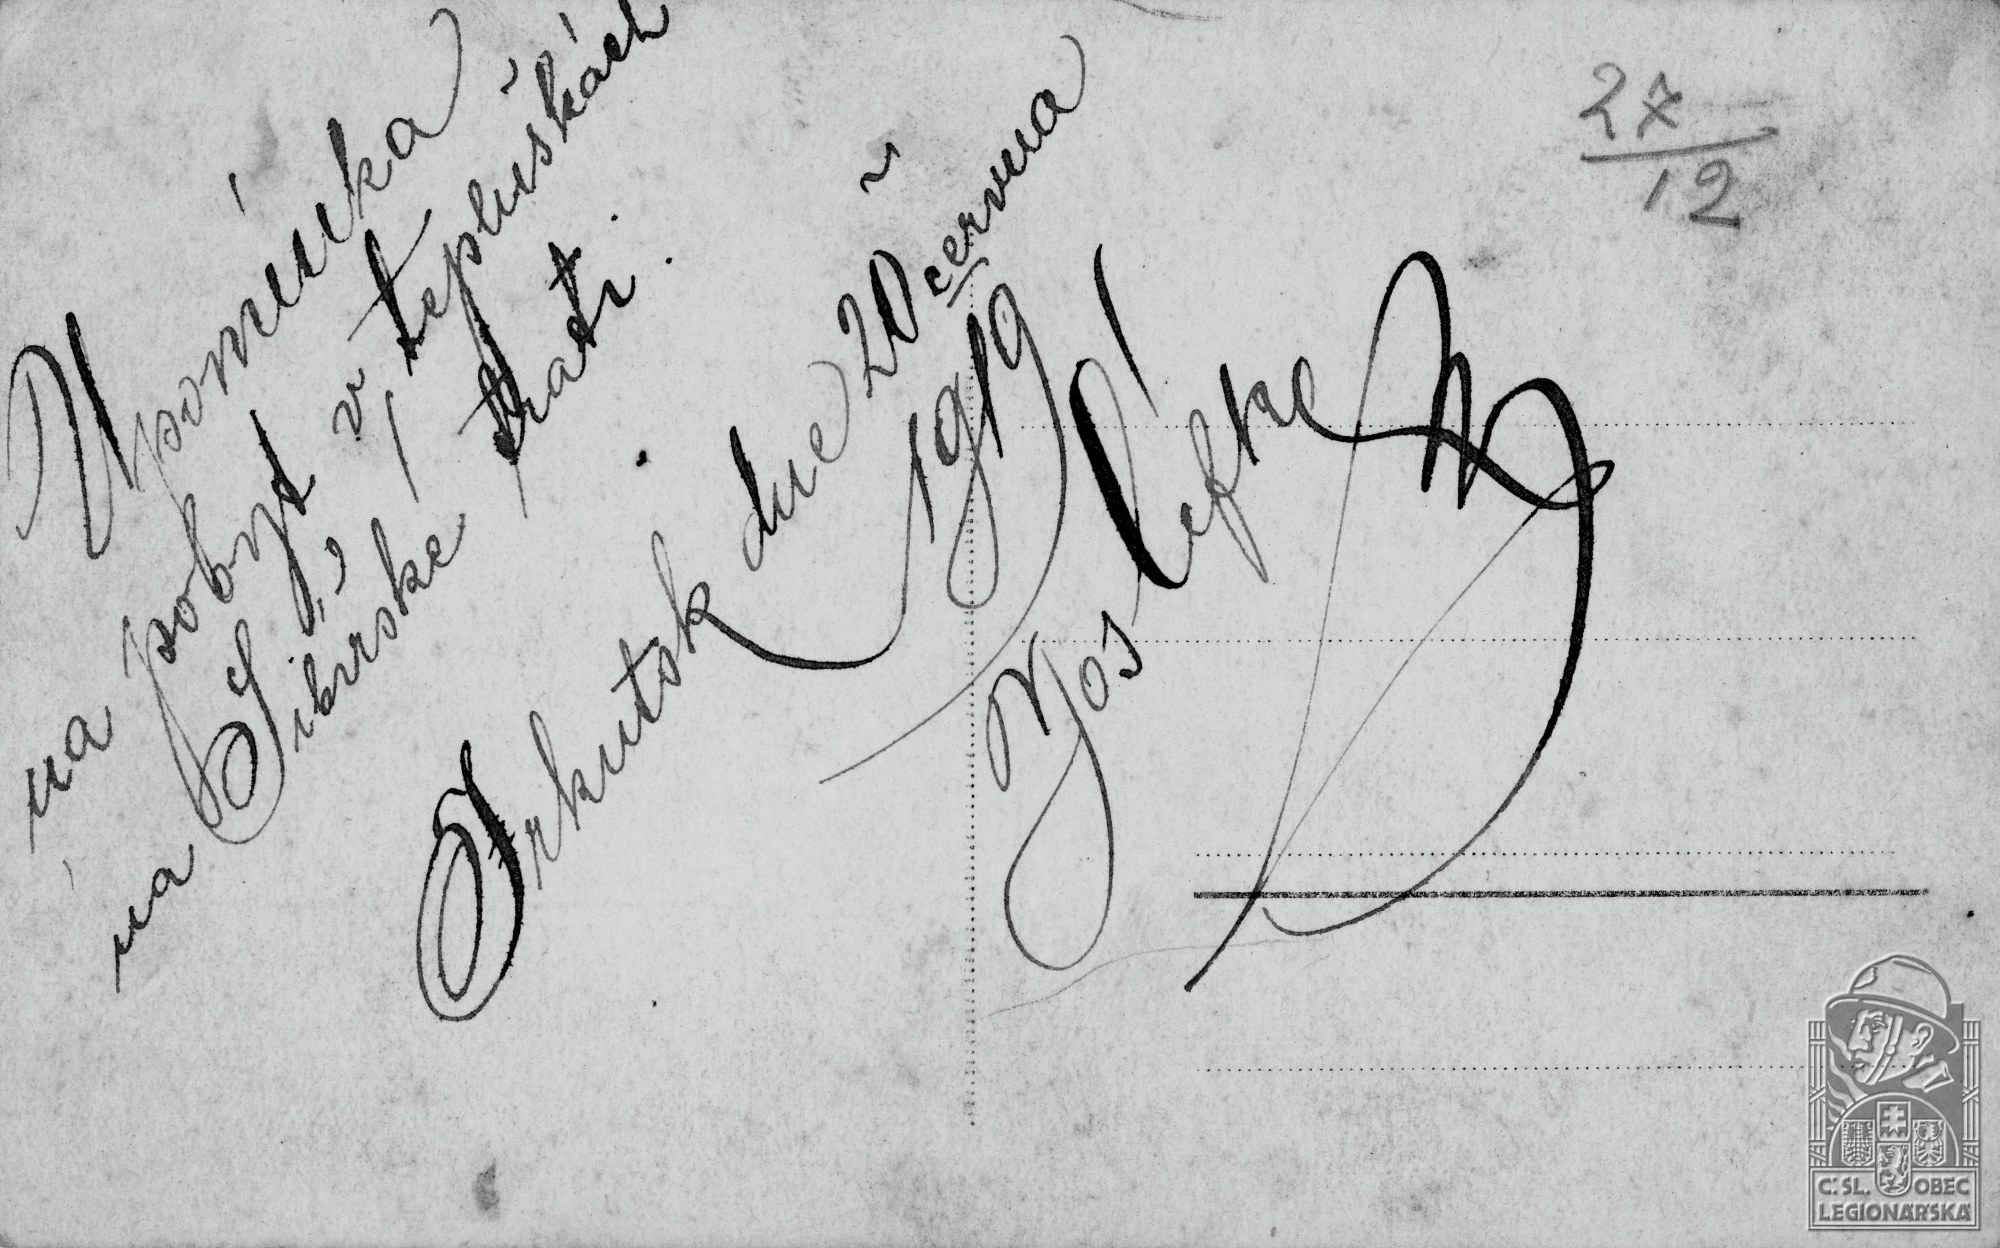 Upomínka
na pobyt v tepluškách
na Sibiřské trati.
Irkutsk dne 20 června
1919
27
12
Č.SL. OBEC
LEGIONÁŘSKÁ